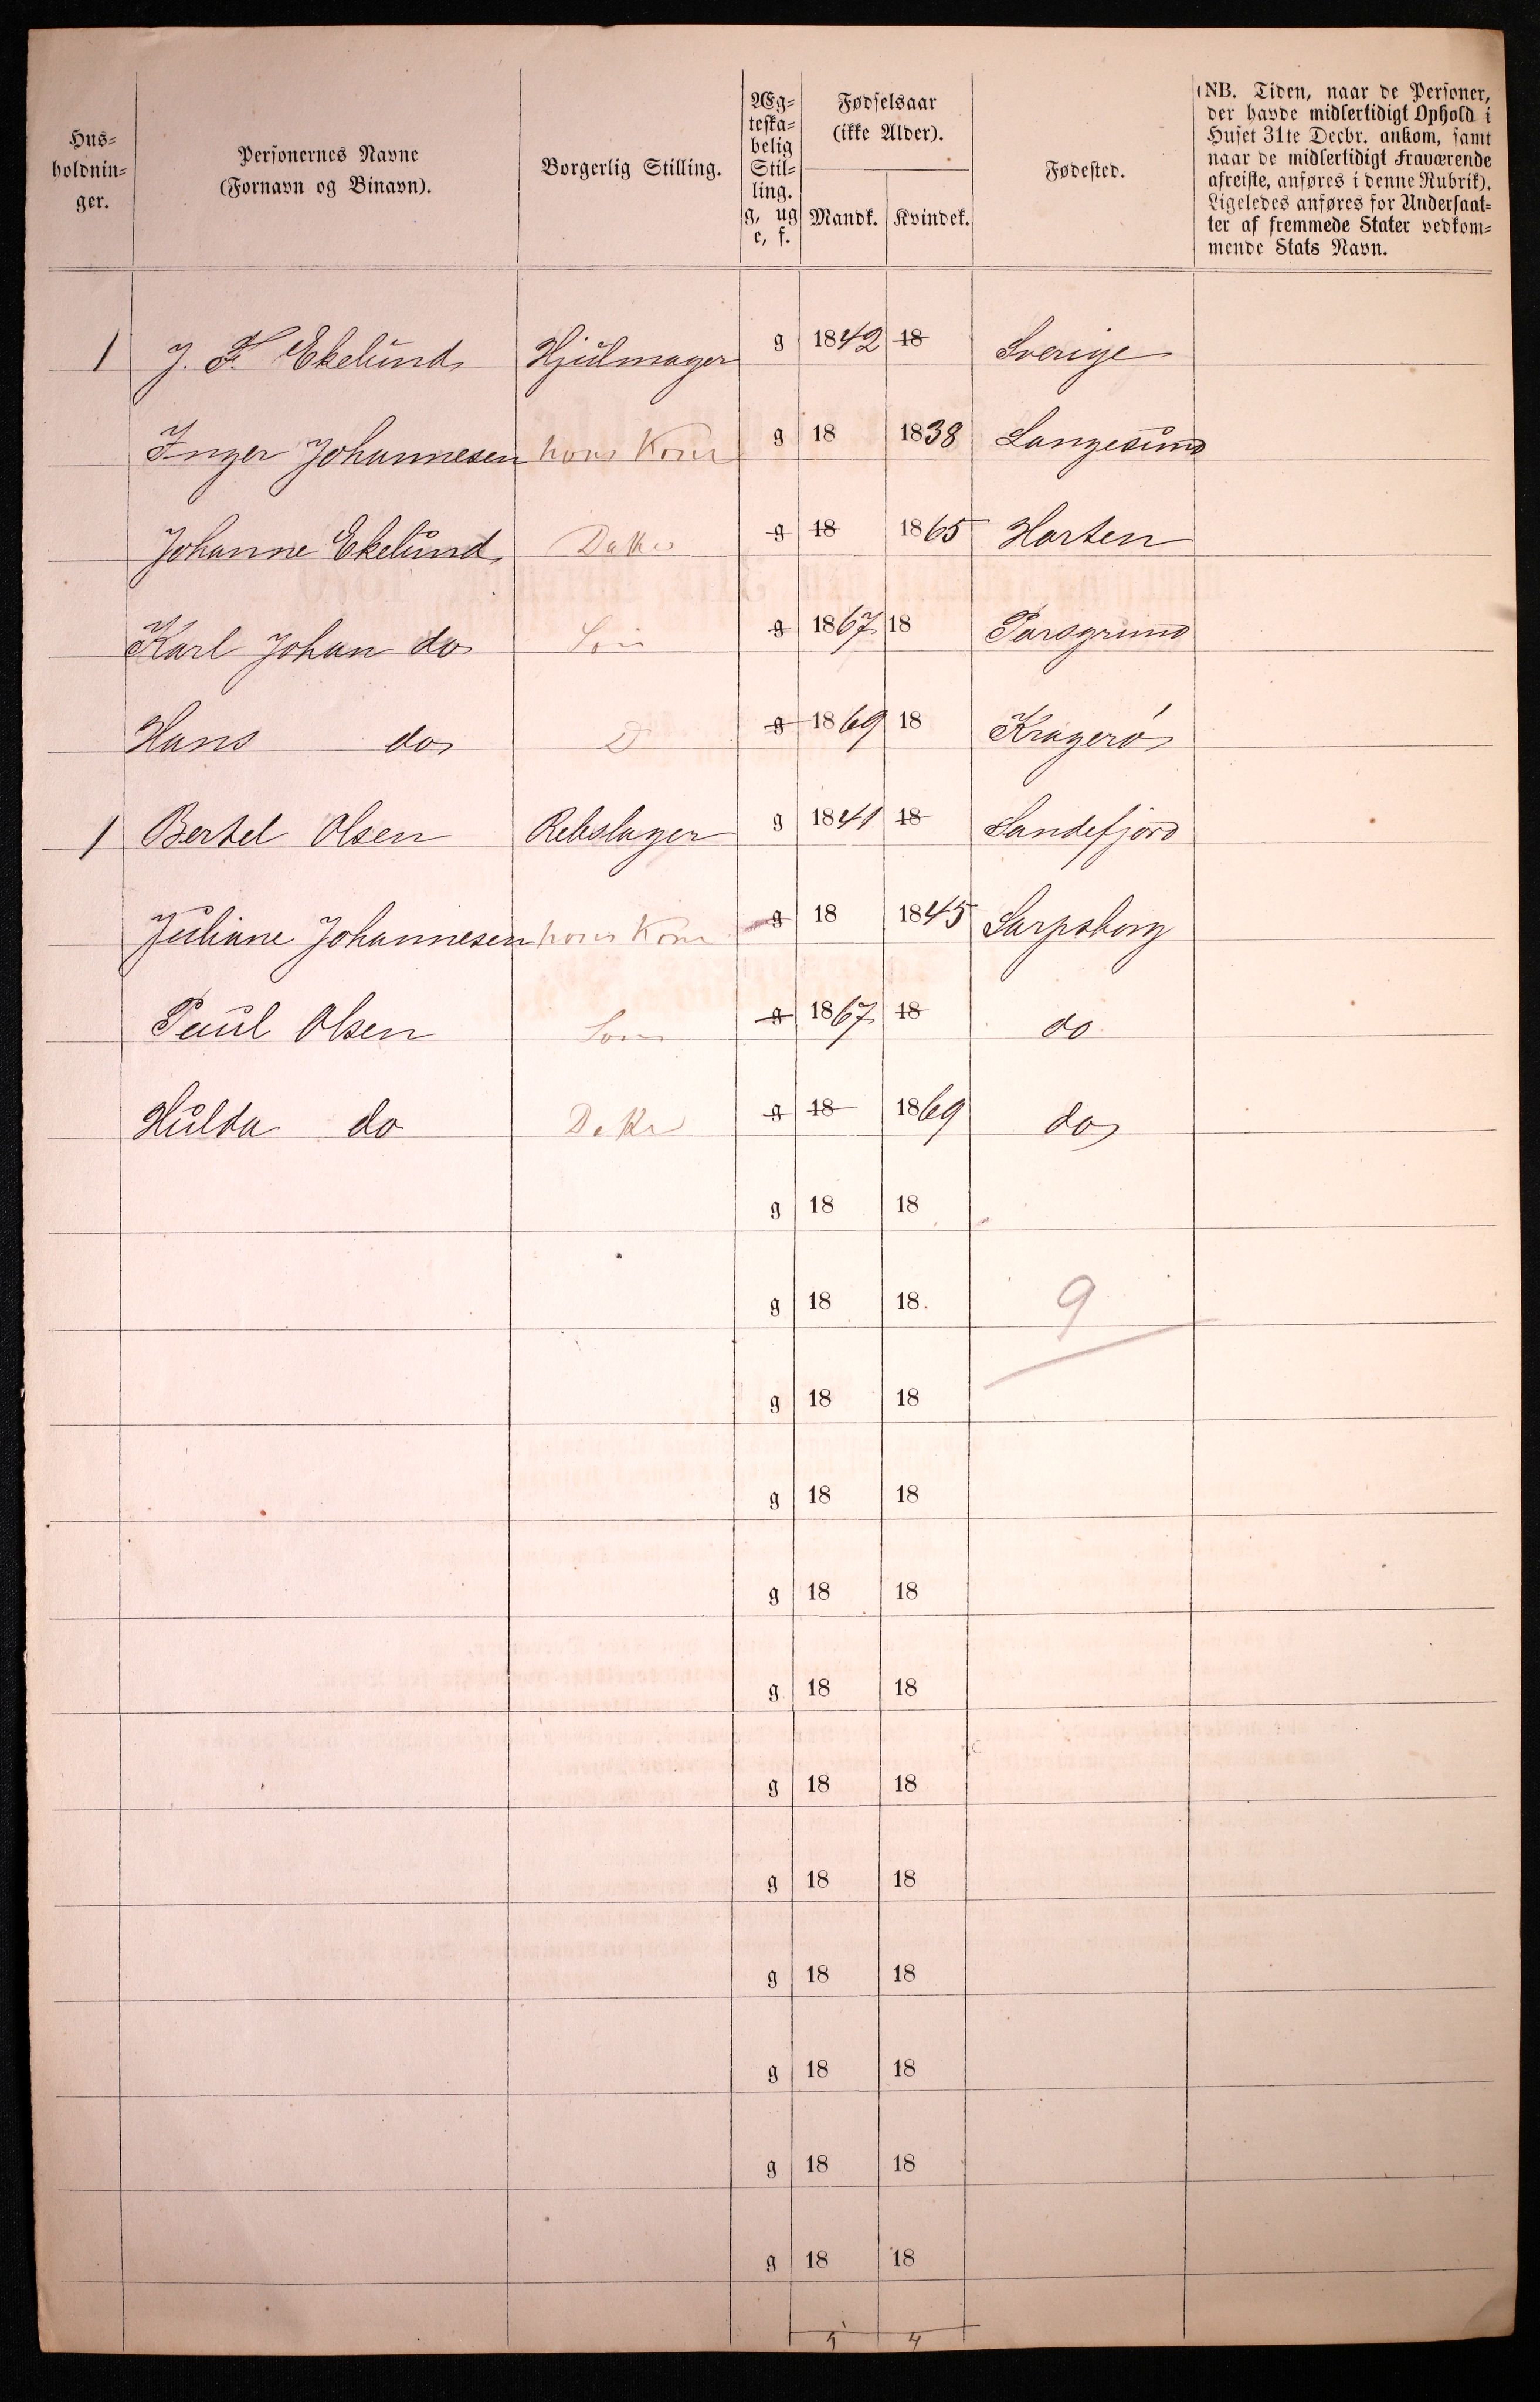 Hus-
holdnin-
ger.
Personernes Navne
(Fornavn og Binavn).
Borgerlig Stilling.
Æg-
teska-
belig
Stil-
ling.
g, ug
e, f.
Fødselsaar
(ikke Alder).
Mandk. Kvindek.
Fødested.
(NB. Tiden, naar de Personer,
der havde midlertidigt Ophold i
Huset 31te Decbr. ankom, samt
naar de midlertidigt Fraværende
afreiste, anføres i denne Rubrik).
Ligeledes anføres for Undersaat-
ter af fremmede Stater vedkom-
mende Stats Navn.
1 J. F. Ekelund Hjulmager g 1842 18 Sverige
Inger Johannesen hans Kone g 18 1838 Langesund
Johanne Ekelund Datter g 18 1865 Horten
Karl Johan do Søn g 1867 18 Porsgrund
Hans do D g 1869 18 Kragerö
1 Bertel Olsen Rebslager g 1841 18 Sandefjord
Juliane Johannesen hans Kone g 18 1845 Sarpsborg
Paul Olsen Søn g 1867 18 do
Hulda do Datter g 18 1869 do
g 18 18
g 18 18. 9
g 18 18
g 18 18
g 18 18
g 18 18
g 18 18
g 18 18
g 18 18
g 18 18
g 18 18
g 18 18
5 4